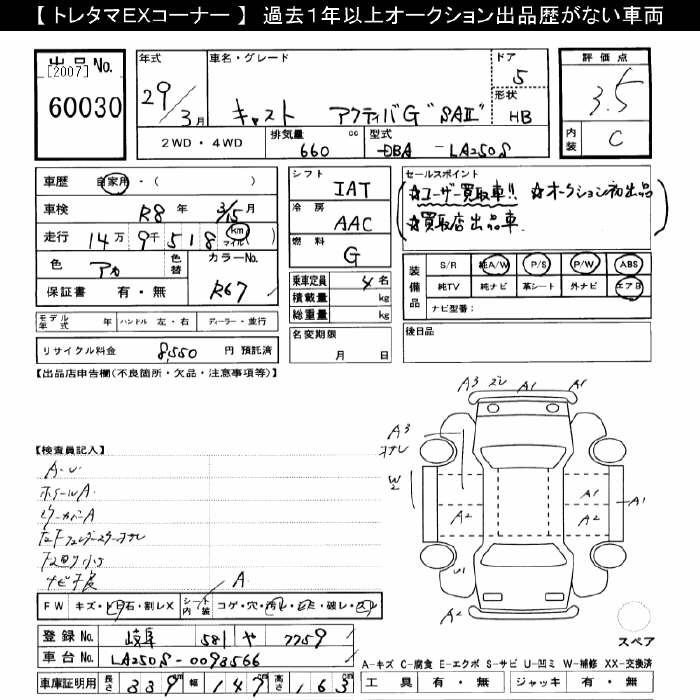 【 トレタマEXコーナー 】 過去1年以上オークション出品歴がない車両
出品No.
[2007]
60030
年式 29年 3月
車名・グレード
キャスト アクティバG "SAⅡ"
ドア 5
形状 HB
2WD・4WD
排気量 660 cc
型式 DBA - LA250S
評価点
3.5
内装 C
車歴 自家用・( )
車検 R8年 3/15月
走行 14万 9千 518 km マイル( )
色 アカ 色替
カラーNo. R67
保証書 有・無
シフト IAT
冷房 AAC
燃料 G
乗車定員 4名
積載量 kg
総重量 kg
セールスポイント
☆ユーザー買取車!! ☆オークション初出品
☆買取店出品車
装備品
S/R 純A/W P/S P/W ABS
純TV 純ナビ 革シート 外ナビ エアB
ナビ型番:
モデル年式 年 ハンドル 左・右 ディーラー・並行
リサイクル料金 8,550 円 預託済
名変期限
月 日
後日品
【出品店申告欄(不良箇所・欠品・注意事項等)】
A3 ズレ A1 A1
A3
W2
A2
A1
A2
A1
U1
A2
【検査員記入】
ホイールA
A
FW キズ・ヒ石・割レX
シート内装 コゲ・穴・汚レ・破レ
登録No. 岐阜 581 や 7759
車台No. LA250S-0093566
スペア
車庫証明用 長さ 339 幅 147 高さ 163
A-キズ C-腐食 E-エクボ S-サビ U-凹ミ W-補修 XX-交換済
工具 有・無 ジャッキ 有・無